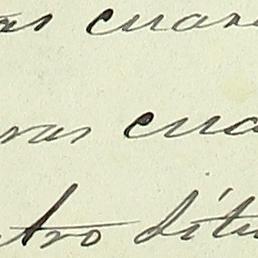 as cuar
ras cua
tro détu